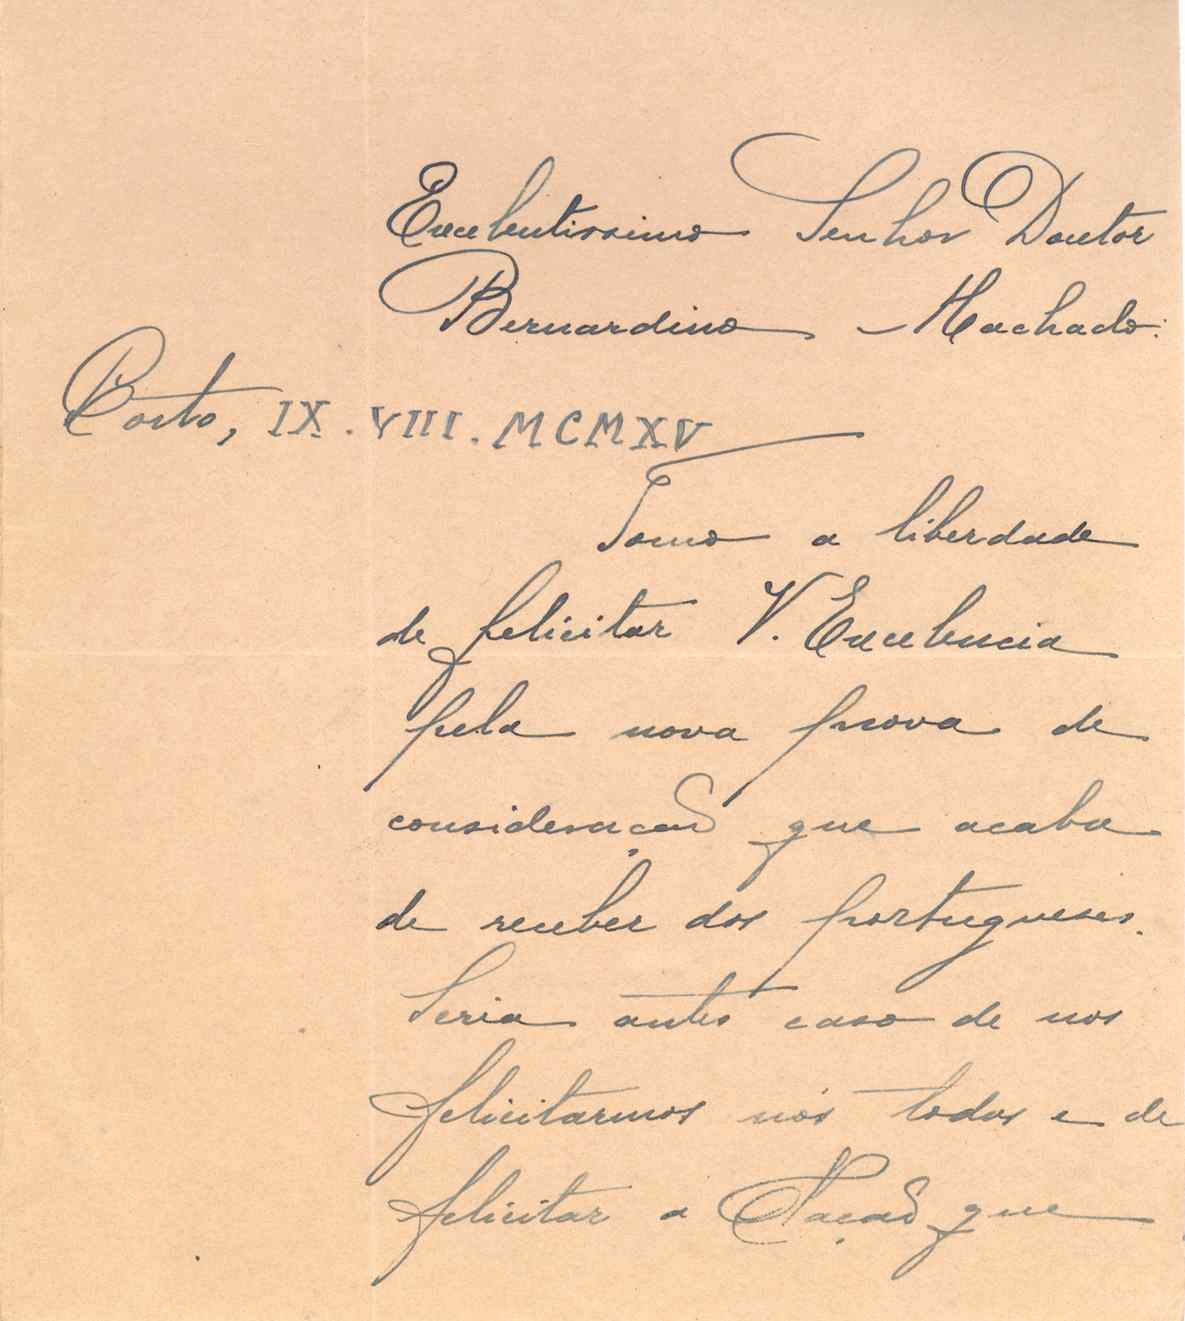 Excelentissimo Senhor Doutor
Bernardino Machado:
Porto, IX.VIII.MCMXV
Tomo a liberdade
de felicitar V. Excelencia
pela nova prova de
consideraçaõ que acaba
de receber dos portugueses.
Seria antes caso de nos
felicitarmos nós todos e de
felicitar a Naçaõ que